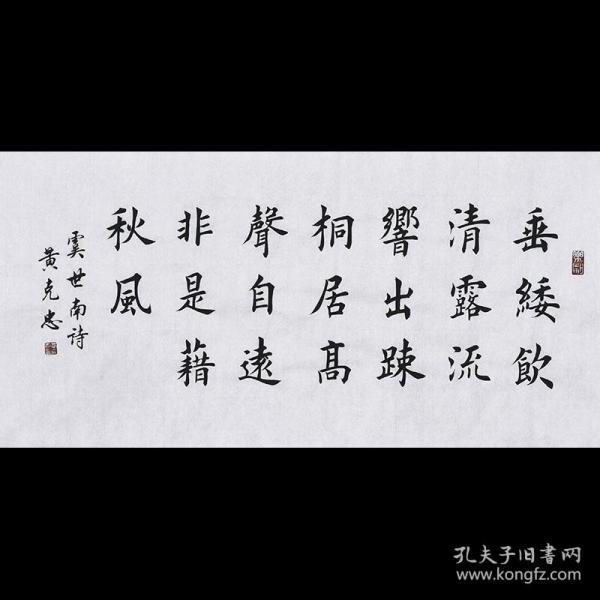 垂緌飲
清露流
響出踈
桐居髙
聲自遠
非是藉
秋風
虞世南诗
黄克忠
孔夫子旧书网
www.kongfz.com